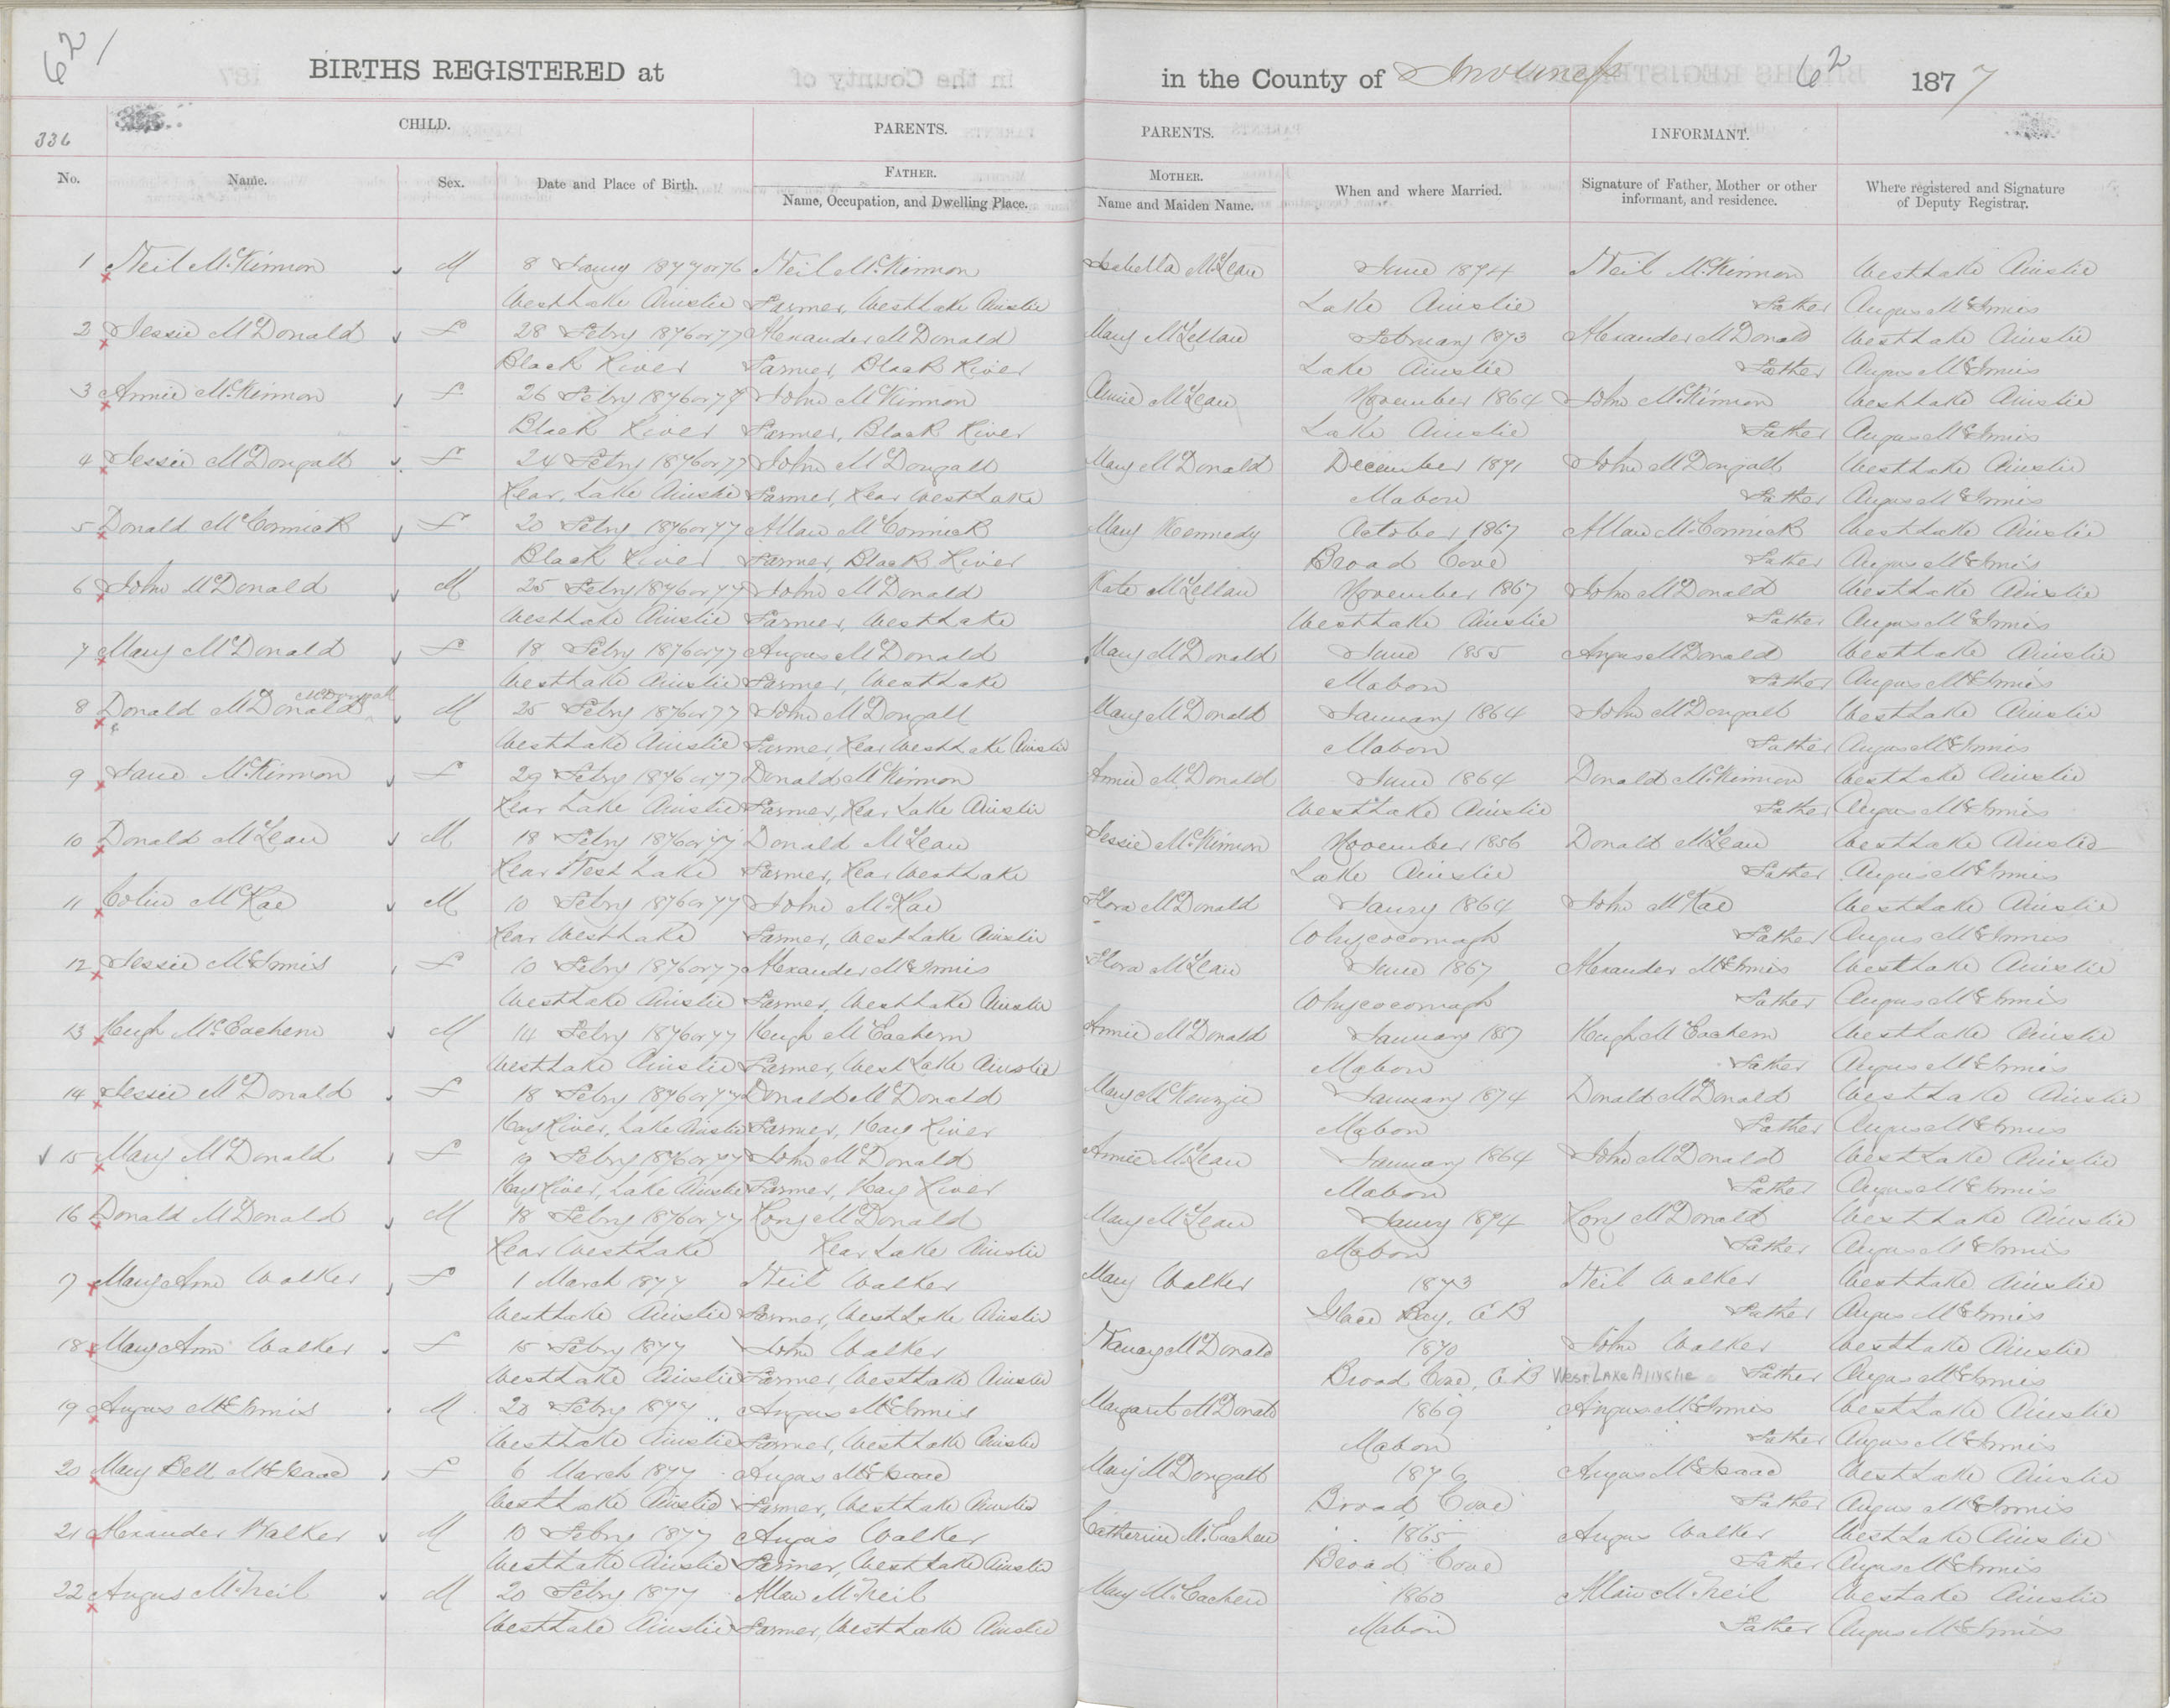 62 /
BIRTHS REGISTERED at in the County of Inverness 62 1877
336
CHILD. PARENTS. PARENTS. INFORMANT.
No. Name. Sex. Date and Place of Birth. FATHER. Name, Occupation, and Dwelling Place. MOTHER. Name and Maiden Name. When and where Married. Signature of Father, Mother or other informant, and residence. Where registered and Signature of Deputy Registrar.
1 Neil McKinnon M 8 Jany 1877 or 76 Neil McKinnon Isabella McLean June 1874 Neil McKinnon West Lake Ainslie
West Lake Ainslie Farmer, West Lake Ainslie Lake Ainslie Father Angus McInnis
2 Jessie McDonald F 28 Febry 1876 or 77 Alexander McDonald Mary McLellan February 1873 Alexander McDonald West Lake Ainslie
Black River Farmer, Black River Lake Ainslie Father Angus McInnis
3 Annie McKinnon F 26 Febry 1876 or 77 John McKinnon Annie McLean November 1864 John McKinnon West Lake Ainslie
Black River Farmer, Black River Lake Ainslie Father Angus McInnis
4 Jessie McDougall F 24 Febry 1876 or 77 John McDougall Mary McDonald December 1871 John McDougall West Lake Ainslie
Rear, Lake Ainslie Farmer, Rear West Lake Mabou Father Angus McInnis
5 Donald McCormick F 20 Febry 1876 or 77 Allan McCormick Mary Kennedy October 1867 Allan McCormick West Lake Ainslie
Black River Farmer, Black River Broad Cove Father Angus McInnis
6 John McDonald M 25 Febry 1876 or 77 John McDonald Kate McLellan November 1867 John McDonald West Lake Ainslie
West Lake Ainslie Farmer, West Lake West Lake Ainslie Father Angus McInnis
7 Mary McDonald F 18 Febry 1876 or 77 Angus McDonald Mary McDonald June 1855 Angus McDonald West Lake Ainslie
West Lake Ainslie Farmer, West Lake Mabou Father Angus McInnis
McDougall
8 Donald McDonald M 25 Febry 1876 or 77 John McDougall Mary McDonald January 1864 John McDougall West Lake Ainslie
West Lake Ainslie Farmer, Rear West Lake Ainslie Mabou Father Angus McInnis
9 Jane McKinnon F 29 Febry 1876 or 77 Donald McKinnon Annie McDonald June 1864 Donald McKinnon West Lake Ainslie
Rear Lake Ainslie Farmer, Rear Lake Ainslie West Lake Ainslie Father Angus McInnis
10 Donald McLean M 18 Febry 1876 or 77 Donald McLean Jessie McKinnon November 1856 Donald McLean West Lake Ainslie
Rear West Lake Farmer, Rear West Lake Lake Ainslie Father Angus McInnis
11 Colin McRae M 10 Febry 1876 or 77 John McRae Flora McDonald Janry 1864 John McRae West Lake Ainslie
Rear West Lake Farmer, West Lake Ainslie Whycocomagh Father Angus McInnis
12 Jessie McInnis F 10 Febry 1876 or 77 Alexander McInnis Flora McLean June 1867 Alexander McInnis West Lake Ainslie
West Lake Ainslie Farmer, West Lake Ainslie Whycocomagh Father Angus McInnis
13 Hugh McEachern M 14 Febry 1876 or 77 Hugh McEachern Annie McDonald January Hugh McEachern West Lake Ainslie
West Lake Ainslie Farmer, West Lake Ainslie Mabou Father Angus McInnis
14 Jessie McDonald F 18 Febry 1876 or 77 Donald McDonald Mary McKenzie January 1874 Donald McDonald West Lake Ainslie
Hay River, Lake Ainslie Farmer, Hay River Mabou Father Angus McInnis
15 Mary McDonald F 19 Febry 1876 or 77 John McDonald Annie McLean January 1864 John McDonald West Lake Ainslie
Hay River, Lake Ainslie Farmer, Hay River Mabou Father Angus McInnis
16 Donald McDonald M 18 Febry 1876 or 77 Rory McDonald Mary McLean Janry 1874 Rory McDonald West Lake Ainslie
Rear West Lake Rear Lake Ainslie Mabou Father Angus McInnis
17 Mary Ann Walker F 1 March 1877 Neil Walker Mary Walker 1873 Neil Walker West Lake Ainslie
West Lake Ainslie Farmer, West Lake Ainslie Glace Bay, C.B Father Angus McInnis
18 Mary Ann Walker F 15 Febry 1877 John Walker Nancy McDonald 1870 John Walker West Lake Ainslie
West Lake Ainslie Farmer, West Lake Ainslie Broad Cove, C.B West Lake Ainslie Father Angus McInnis
19 Angus McInnis M 20 Febry 1877 Angus McInnis Margaret McDonald 1869 Angus McInnis West Lake Ainslie
West Lake Ainslie Farmer, West Lake Ainslie Mabou Father Angus McInnis
20 Mary Bell McIsaac F 6 March 1877 Angus McIsaac Mary McDougall 1876 Angus McIsaac West Lake Ainslie
West Lake Ainslie Farmer, West Lake Ainslie Broad Cove Father Angus McInnis
21 Alexander Walker M 10 Febry 1877 Angus Walker Catherine McEachern 1865 Angus Walker West Lake Ainslie
West Lake Ainslie Farmer, West Lake Ainslie Broad Cove Father Angus McInnis
22 Angus McNeil M 20 Febry 1877 Allan McNeil Mary McEachern 1860 Allan McNeil West Lake Ainslie
West Lake Ainslie Farmer, West Lake Ainslie Mabou Father Angus McInnis